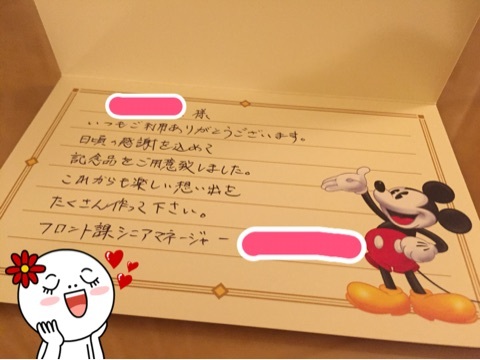 様
いつもご利用ありがとうございます。
日頃の感謝を込めて
記念品をご用意致しました。
これからも楽しい想い出を
たくさん作って下さい。
フロント課シニアマネージャー